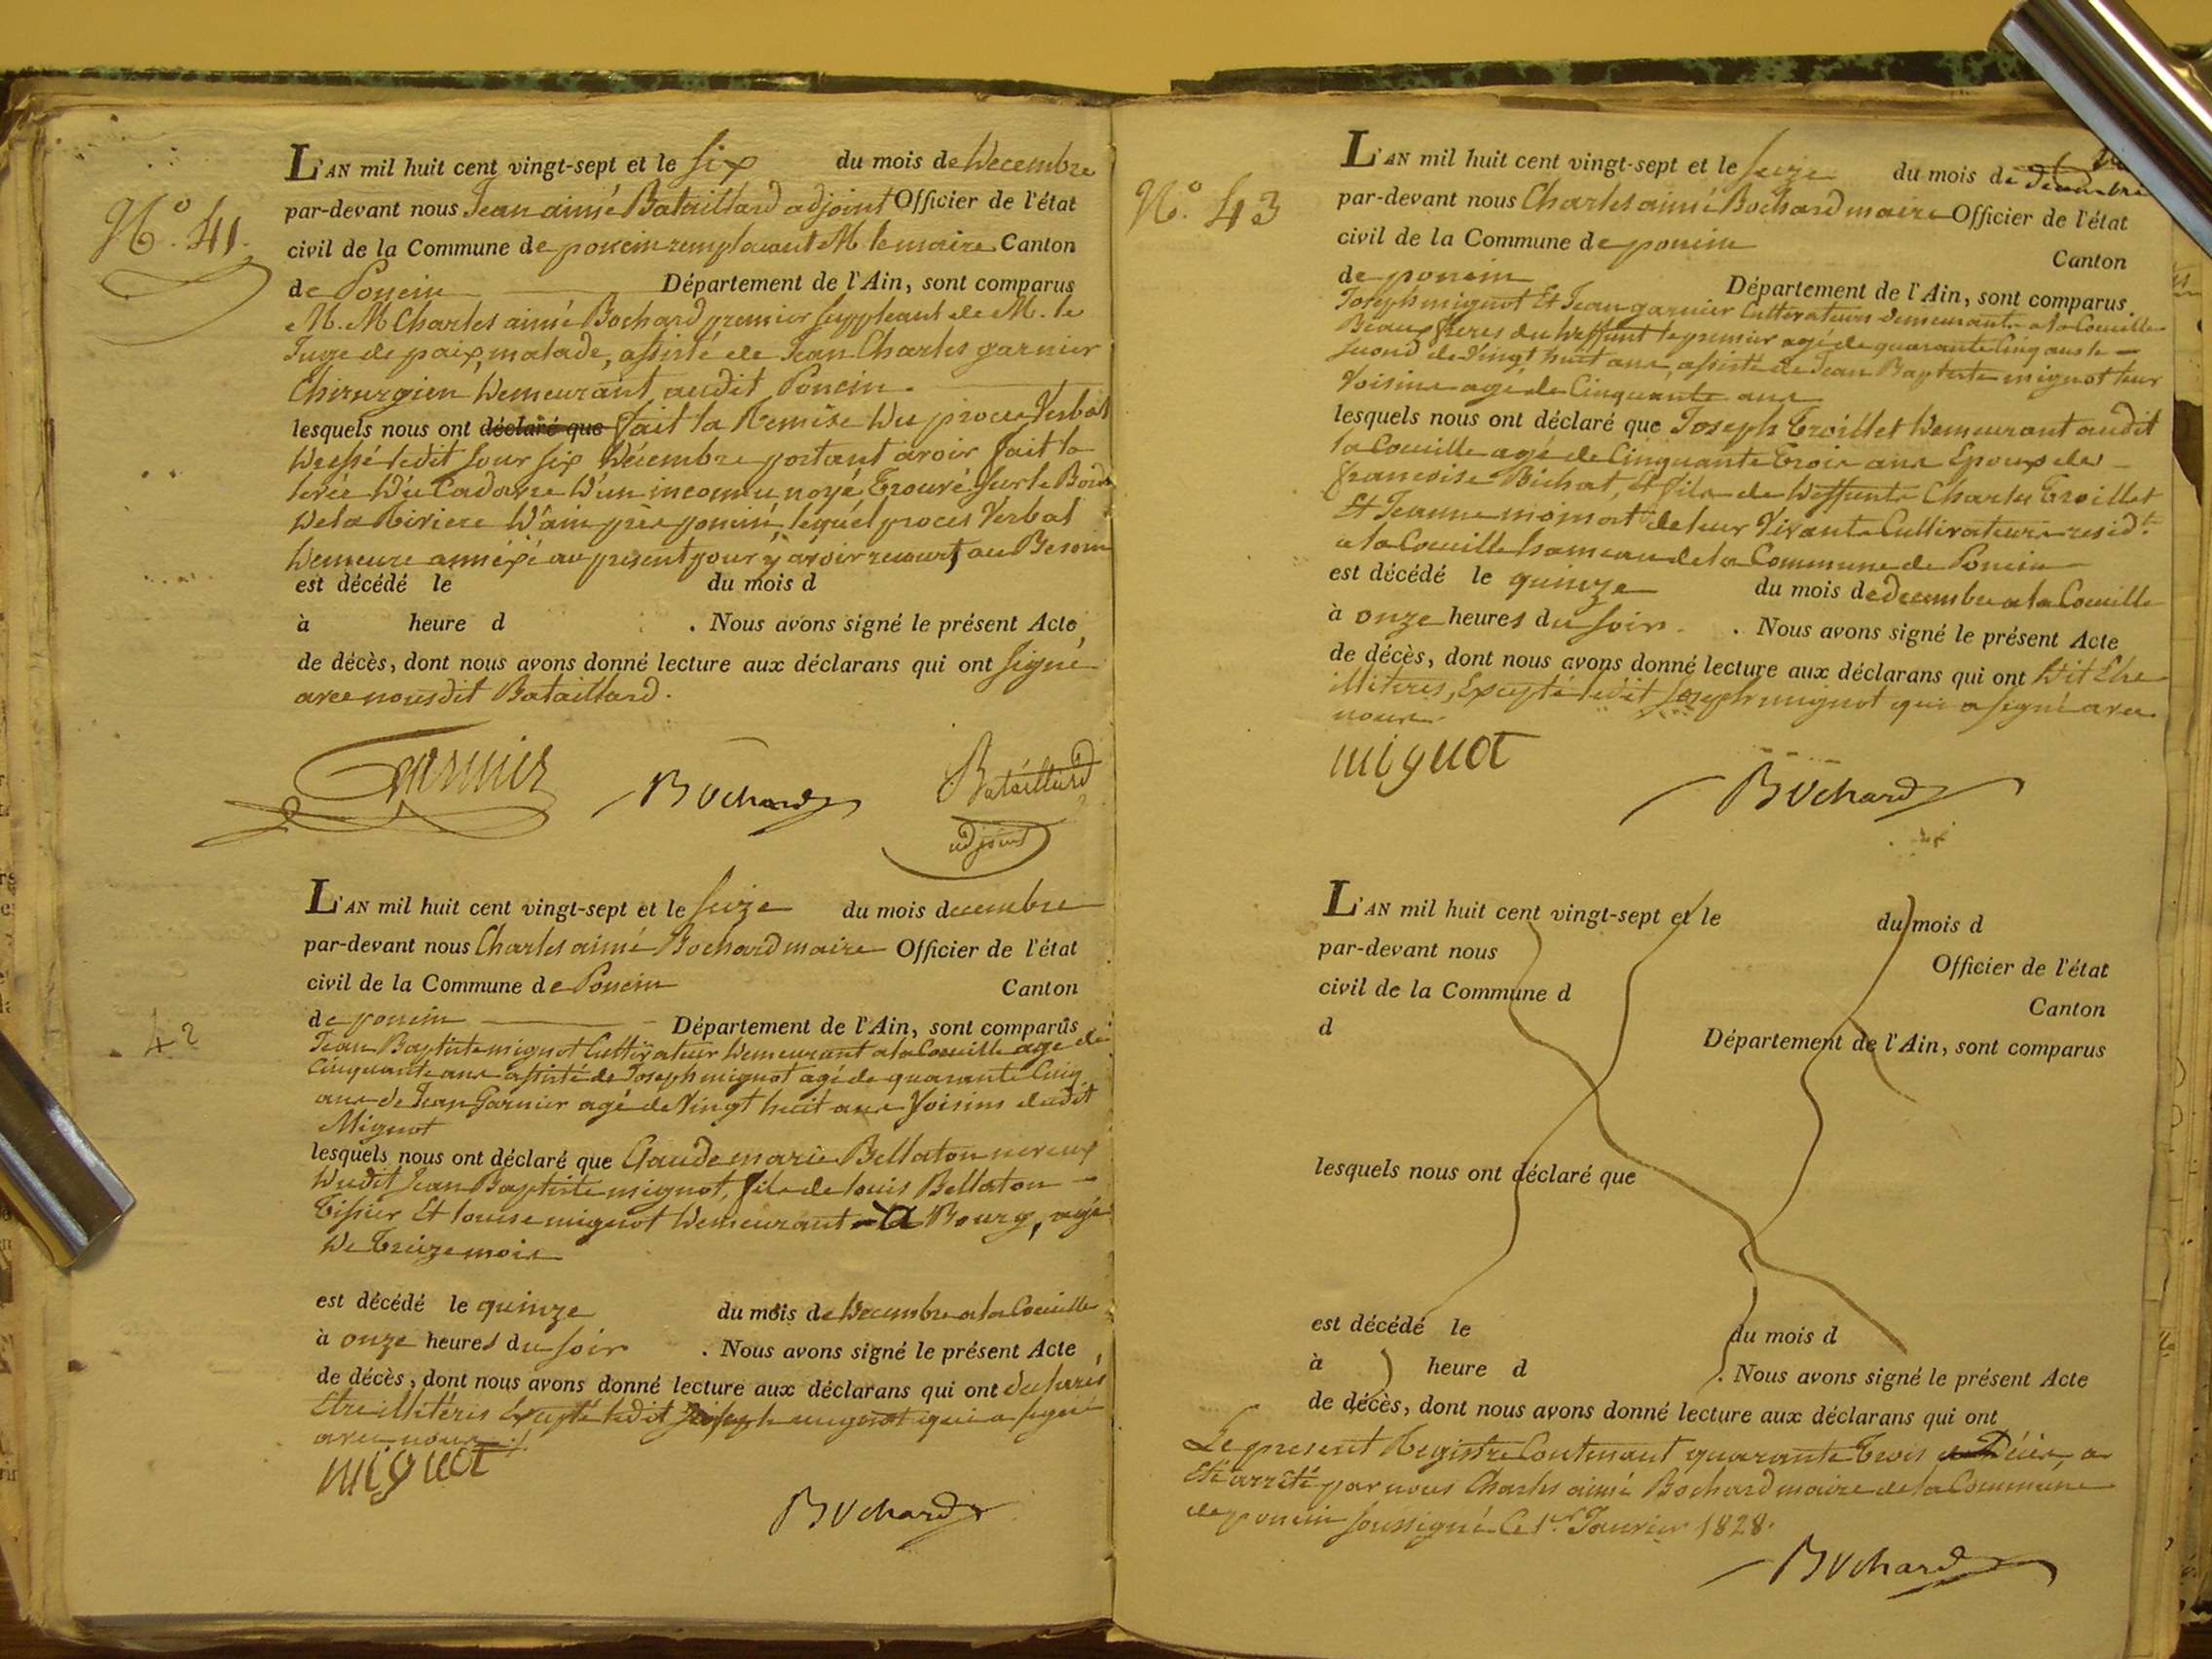 N.° 41.
L'AN mil huit cent vingt-sept et le six du mois de Decembre
par-devant nous Jean aimé Bataillard adjoint Officier de l'état
civil de la Commune de poncin remplacant M le maire Canton
de Poncin Département de l'Ain, sont comparus
M. M Charles aimé Bochard premier suppleant de M. le
Juge de paix, malade, assisté de Jean Charles garnier
Chirurgien Demeurant audit Poncin.
lesquels nous ont déclaré que fait la Remise Du proces Verbal
Dressé ledit Jour six Décembre portant avoir fait la
levée Du Cadavre D'un inconnu noyé, Trouvé sur le Bord
De la Riviere D'ain près poncin, lequel proces Verbal
Demeure annéxé au present pour y avoir recourt, au Besoin
est décédé le du mois d
à heure d . Nous avons signé le présent Acte
de décès, dont nous avons donné lecture aux déclarans qui ont signé
avec nous dit Bataillard.
Garnier Bochard Bataillard
adjoint
42
L'AN mil huit cent vingt-sept et le seize du mois decembre
par-devant nous Charles aimé Bochard maire Officier de l'état
civil de la Commune de Poncin Canton
de poncin Département de l'Ain, sont comparus
Jean Baptiste mignot Cultivateur Demeurant a la Coueille age de
Cinquante ans assisté de Joseph mignot agé de quarante Cinq
ans de Jean Garnier agé de Vingt huit ans Voisins dudit
Mignot
lesquels nous ont déclaré que Claude marie Bellaton neveux
Dudit Jean Baptiste mignot, fils de louis Bellaton
Tissier Et louise mignot Demeurant à Bourg, agé
De Treize mois
est décédé le quinze du mois de Decembre a la Coueille
à onze heures du soir . Nous avons signé le présent Acte
de décès, dont nous avons donné lecture aux déclarans qui ont declarés
Etre illitéris Excepté ledit Joseph mignot qui a signé
avec nous
mignot
Bochard
N.° 43
L'AN mil huit cent vingt-sept et le seize du mois de decembre
par-devant nous Charles aimé Bochard maire Officier de l'état
civil de la Commune de poncin
Canton
de poncin Département de l'Ain, sont comparus
Joseph mignot Et Jean garnier Cultivateurs demeurants a la Coueille
Beaux frères du Deffunt le premier agé de quarante Cinq ans le
second de Vingt huit ans, assisté de Jean Baptiste mignot leur
Voisins agé de Cinquante ans
lesquels nous ont déclaré que Joseph Troillet Demeurant audit
la Coueille agé de Cinquante Trois ans Epoux de
francoise Bichat, et fils de Deffunts Charles Troillet
Et Jeanne momort de leur Vivants Cultivateurs resid.ts
a la Coueille hameau de la Commune de Poncin
est décédé le quinze du mois de decembre a la Coueille
à onze heures du soir. . Nous avons signé le présent Acte
de décès, dont nous avons donné lecture aux déclarans qui ont Dit Etre
illiteris, Excepté ledit Joseph mignot qui a signé avec
nous
mignot
Bochard
L'AN mil huit cent vingt-sept et le du mois d
par-devant nous Officier de l'état
civil de la Commune d Canton
d Département de l'Ain, sont comparus
lesquels nous ont déclaré que
est décédé le du mois d
à heure d . Nous avons signé le présent Acte
de décès, dont nous avons donné lecture aux déclarans qui ont
Le present Registre Contenant quarante Trois Décés, a
Eté arrêté par nous Charles aimé Bochard maire de la Commune
de poncin soussigné Ce 1.er Janvier 1828.
Bochard